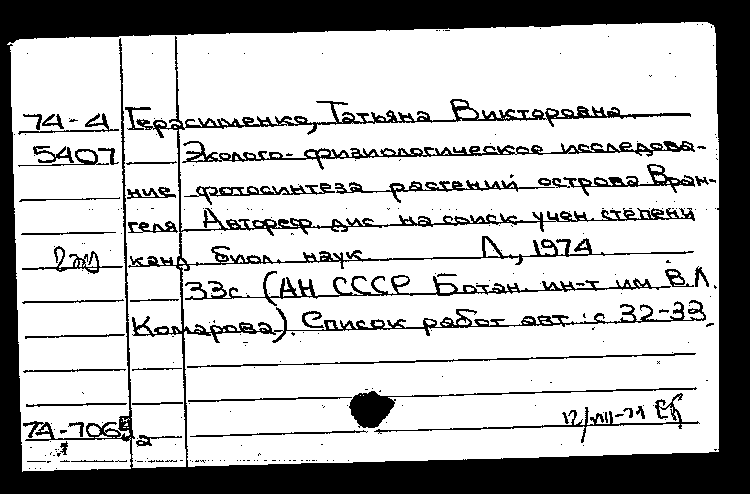 74-4 Герасименко, Татьяна Викторовна.
5407 Эколого-физиологическое исследова-
ние фотосинтеза растений острова Вран-
геля. Автореф. дис. на соиск. учен. степени
канд. биол. наук. Л., 1974.
33с. (АН СССР. Ботан. ин-т им. В.Л.
Комарова). Список работ авт.: с 32-33.
74-706